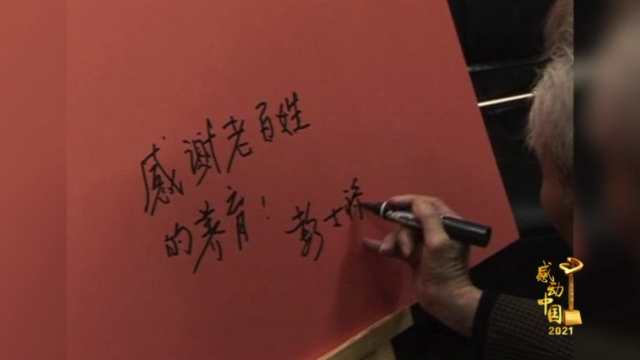 感谢老百姓
的养育！彭士禄
感动
中国
2021